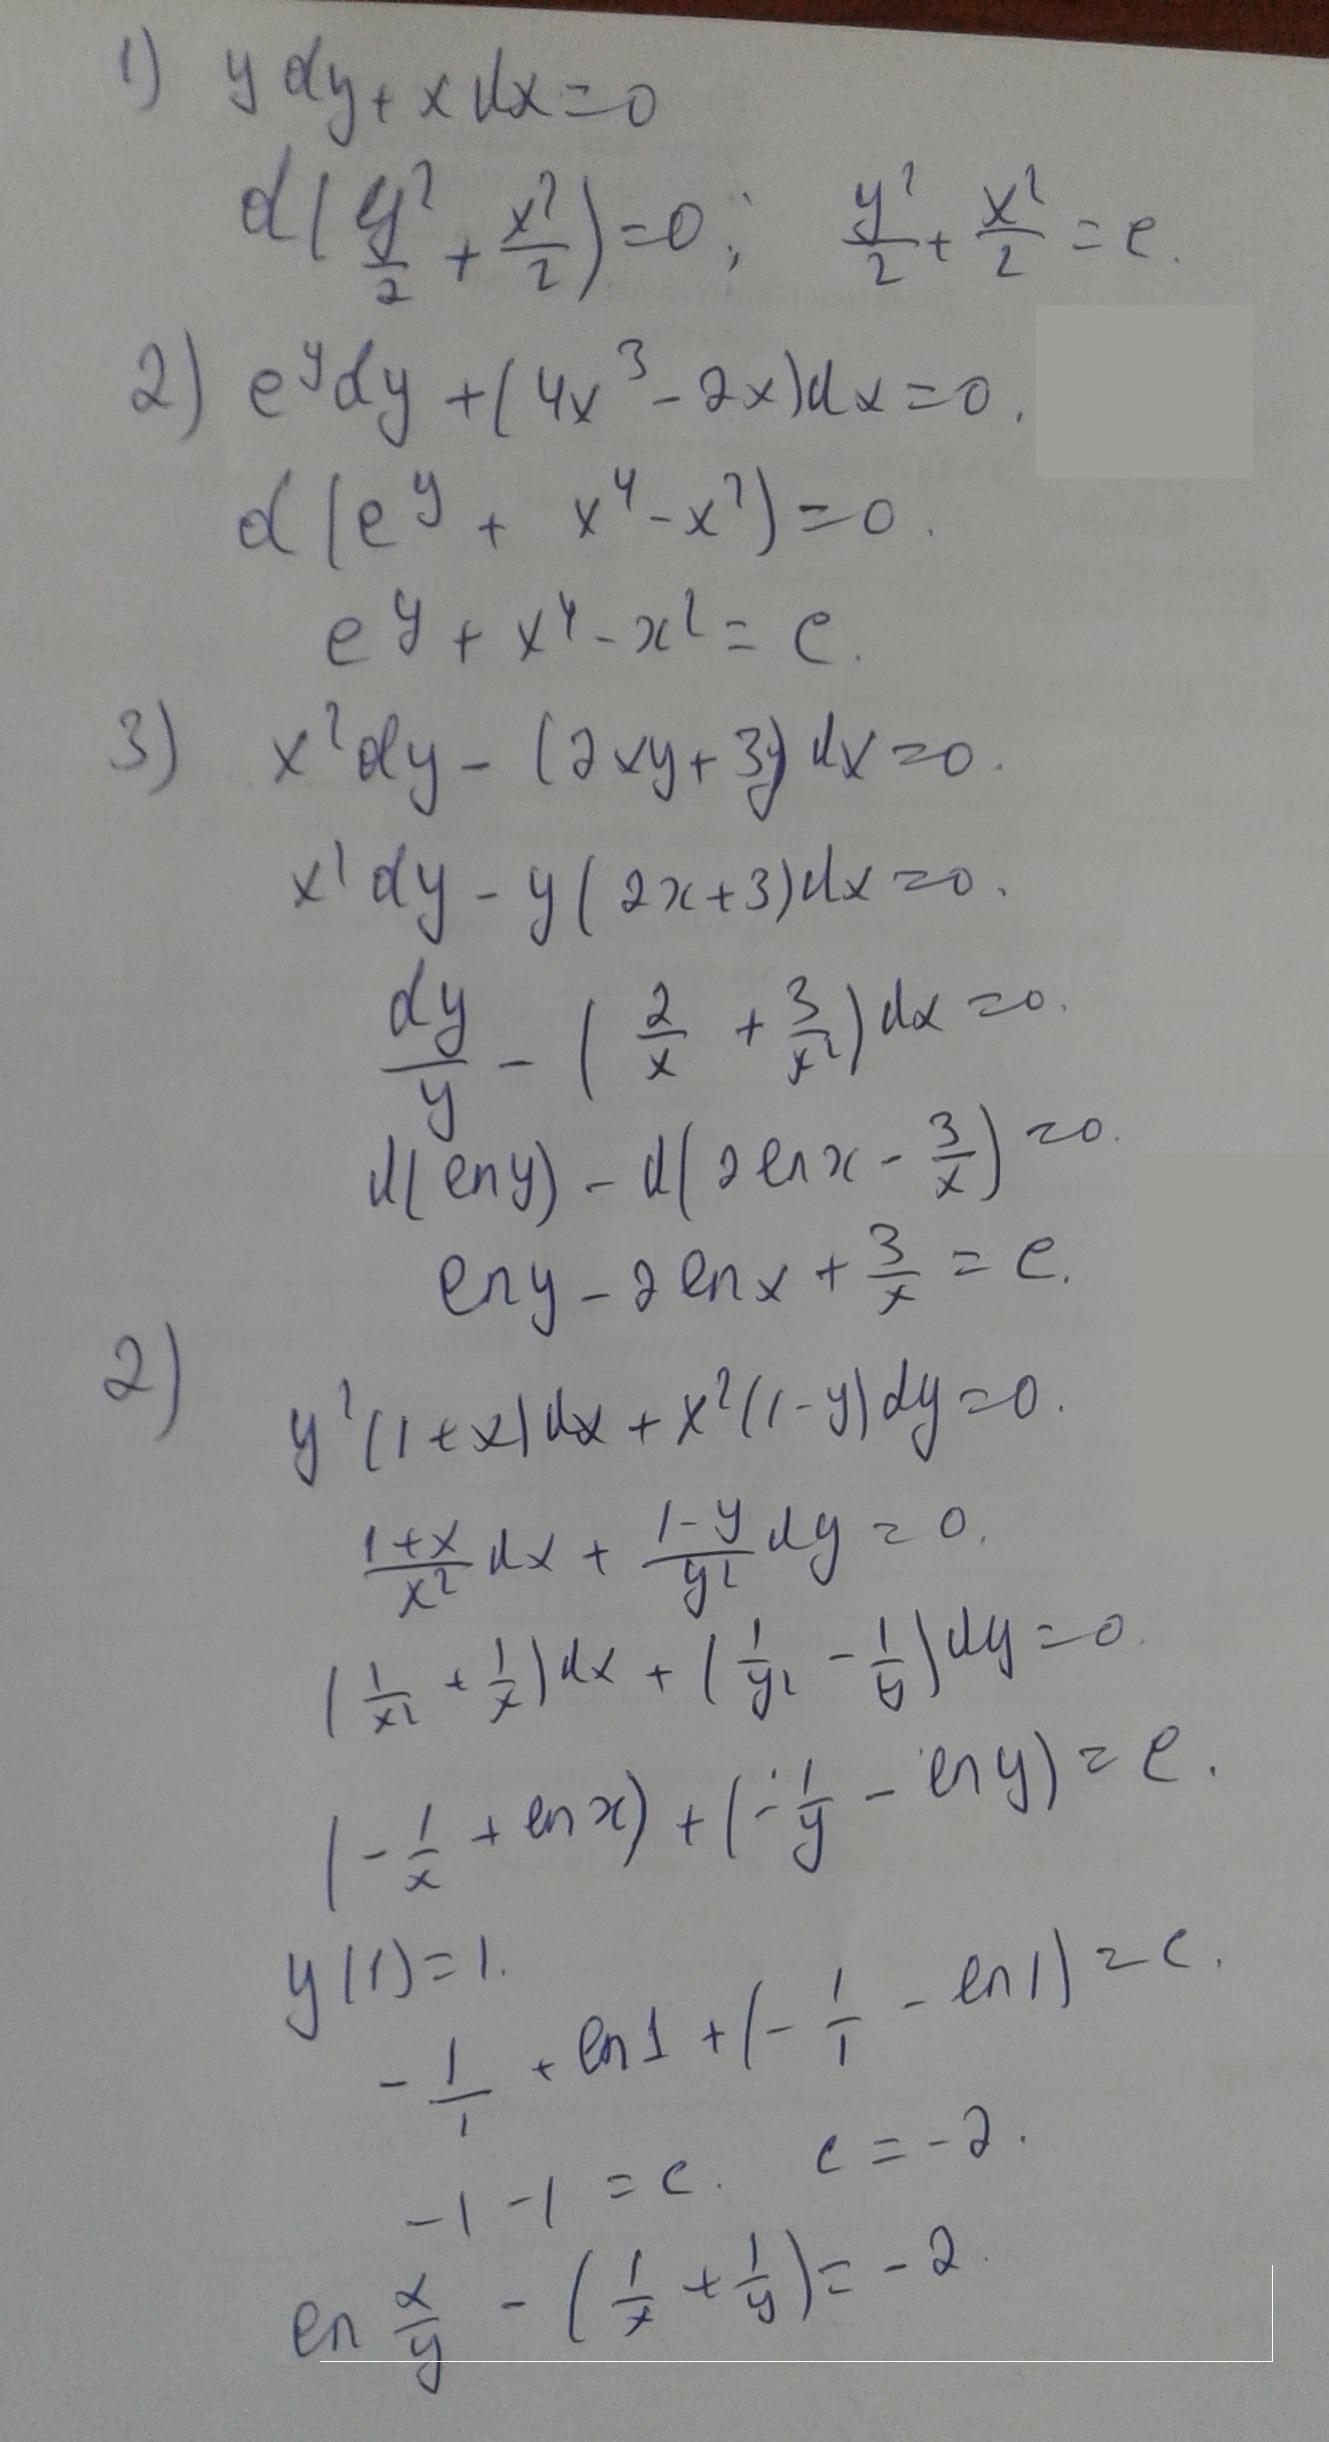 1) y dy + x dx = 0
d(y²/2 + x²/2) = 0; y²/2 + x²/2 = c.
2) e^y dy + (4x³ - 2x)dx = 0.
d(e^y + x⁴ - x²) = 0.
e^y + x⁴ - x² = c.
3) x² dy - (2xy + 3y) dx = 0.
x² dy - y(2x + 3)dx = 0.
dy/y - (2/x + 3/x²)dx = 0.
d(ln y) - d(2 ln x - 3/x) = 0.
ln y - 2 ln x + 3/x = c.
2) y²(1 + x)dx + x²(1 - y)dy = 0.
(1+x)/x² dx + (1-y)/y² dy = 0.
(1/x² + 1/x)dx + (1/y² - 1/y)dy = 0.
(-1/x + ln x) + (-1/y - ln y) = c.
y(1) = 1.
-1/1 + ln 1 + (-1/1 - ln 1) = c.
-1 - 1 = c. c = -2.
ln x/y - (1/x + 1/y) = -2.